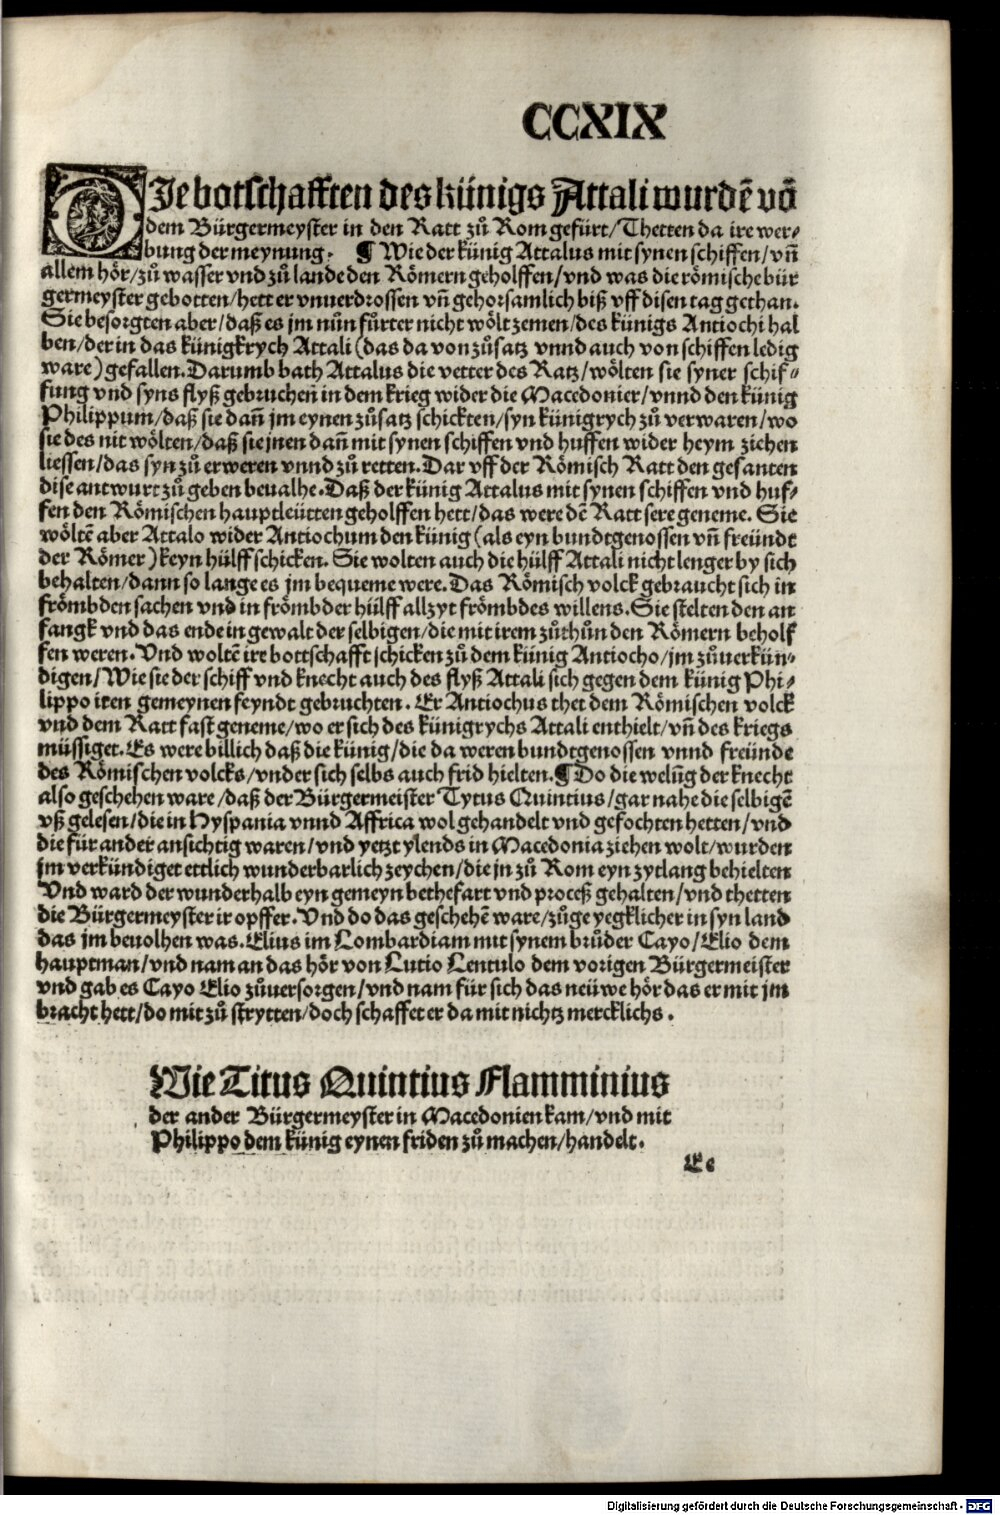 CCXIX
DIe botschafften des künigs Attali wurdē vō
dem Bürgermeyster in den Ratt zů Rom gefürt/Thetten da ire wer⸗
bung der meynung. ¶ Wie der künig Attalus mit synen schiffen/vñ
allem hör/zů wasser vnd zů lande den Römern geholffen/vnd was die römische bür
germeyster gebotten/hett er vnuerdrossen vñ gehorsamlich biß vff disen tag gethan.
Sie besorgten aber/daß es jm nůn fůrter nicht wölt zemen/des künigs Antiochi hal
ben/der in das künigkrych Attali (das da von zůsatz vnnd auch von schiffen ledig
ware) gefallen. Darumb bath Attalus die vetter des Ratz/wölten sie syner schif⸗
fung vnd syns flyß gebruchen̄ in dem krieg wider die Macedonier/vnnd den künig
Philippum/daß sie dañ jm eynen zůsatz schickten/syn künigrych zů verwaren/wo
sie des nit wölten/daß sie jnen dañ mit synen schiffen vnd huffen wider heym ziehen
liessen/das syn zů erweren vnnd zů retten. Dar vff der Römisch Ratt den gesanten
dise antwurt zů geben beualhe. Daß der künig Attalus mit synen schiffen vnd huf⸗
fen den Römischen hauptleütten geholffen hett/das were dē Ratt sere geneme. Sie
wöltē aber Attalo wider Antiochum den künig (als eyn bundtgenossen vñ freündt
der Römer) keyn hülff schicken. Sie wolten auch die hülff Attali nicht lenger by sich
behalten/dann so lange es jm bequeme were. Das Römisch volck gebraucht sich in
frömbden sachen vnd in frömbder hülff allzyt frömbdes willens. Sie stelten den an
fangk vnd das ende in gewalt der selbigen/die mit irem zůthůn den Römern beholf
fen weren. Vnd woltē ire bottschafft schicken zů dem künig Antiocho/jm zůuerkün⸗
digen/Wie sie der schiff vnd knecht auch des flyß Attali sich gegen dem künig Phi⸗
lippo iren gemeynen feyndt gebruchten. Er Antiochus thet dem Römischen volck
vnd dem Ratt fast geneme/wo er sich des künigrychs Attali enthielt/vñ des kriegs
müssiget. Es were billich daß die künig/die da weren bundtgenossen vnnd freünde
des Römischen volcks/vnder sich selbs auch frid hielten. ¶ Do die welūg der knecht
also geschehen ware/daß der Bürgermeister Tytus Quintius/gar nahe die selbigē
vß gelesen/die in Hyspania vnnd Affrica wol gehandelt vnd gefochten hetten/vnd
die für ander ansichtig waren/vnd yetzt ylends in Macedonia ziehen wolt/wurden
jm verkündiget ettlich wunderbarlich zeychen/die jn zů Rom eyn zytlang behielten
Vnd ward der wunderhalb eyn gemeyn bethefart vnd proceß gehalten/vnd thetten
die Bürgermeyster ir opffer. Vnd do das geschehē ware/zůge yegklicher in syn land
das jm beuolhen was. Elius im Lombardiam mit synem brůder Cayo/Elio dem
hauptman/vnd nam an das hör von Lutio Lentulo dem vorigen Bürgermeister
vnd gab es Cayo Elio zůuersorgen/vnd nam für sich das neüwe hör das er mit jm
bracht hett/do mit zů strytten/doch schaffet er da mit nichtz mercklichs.
Wie Titus Quintius Flamminius
der ander Bürgermeyster in Macedonien kam/vnd mit
Philippo dem künig eynen friden zů machen/handelt.
Ee
Digitalisierung gefördert durch die Deutsche Forschungsgemeinschaft - DFG